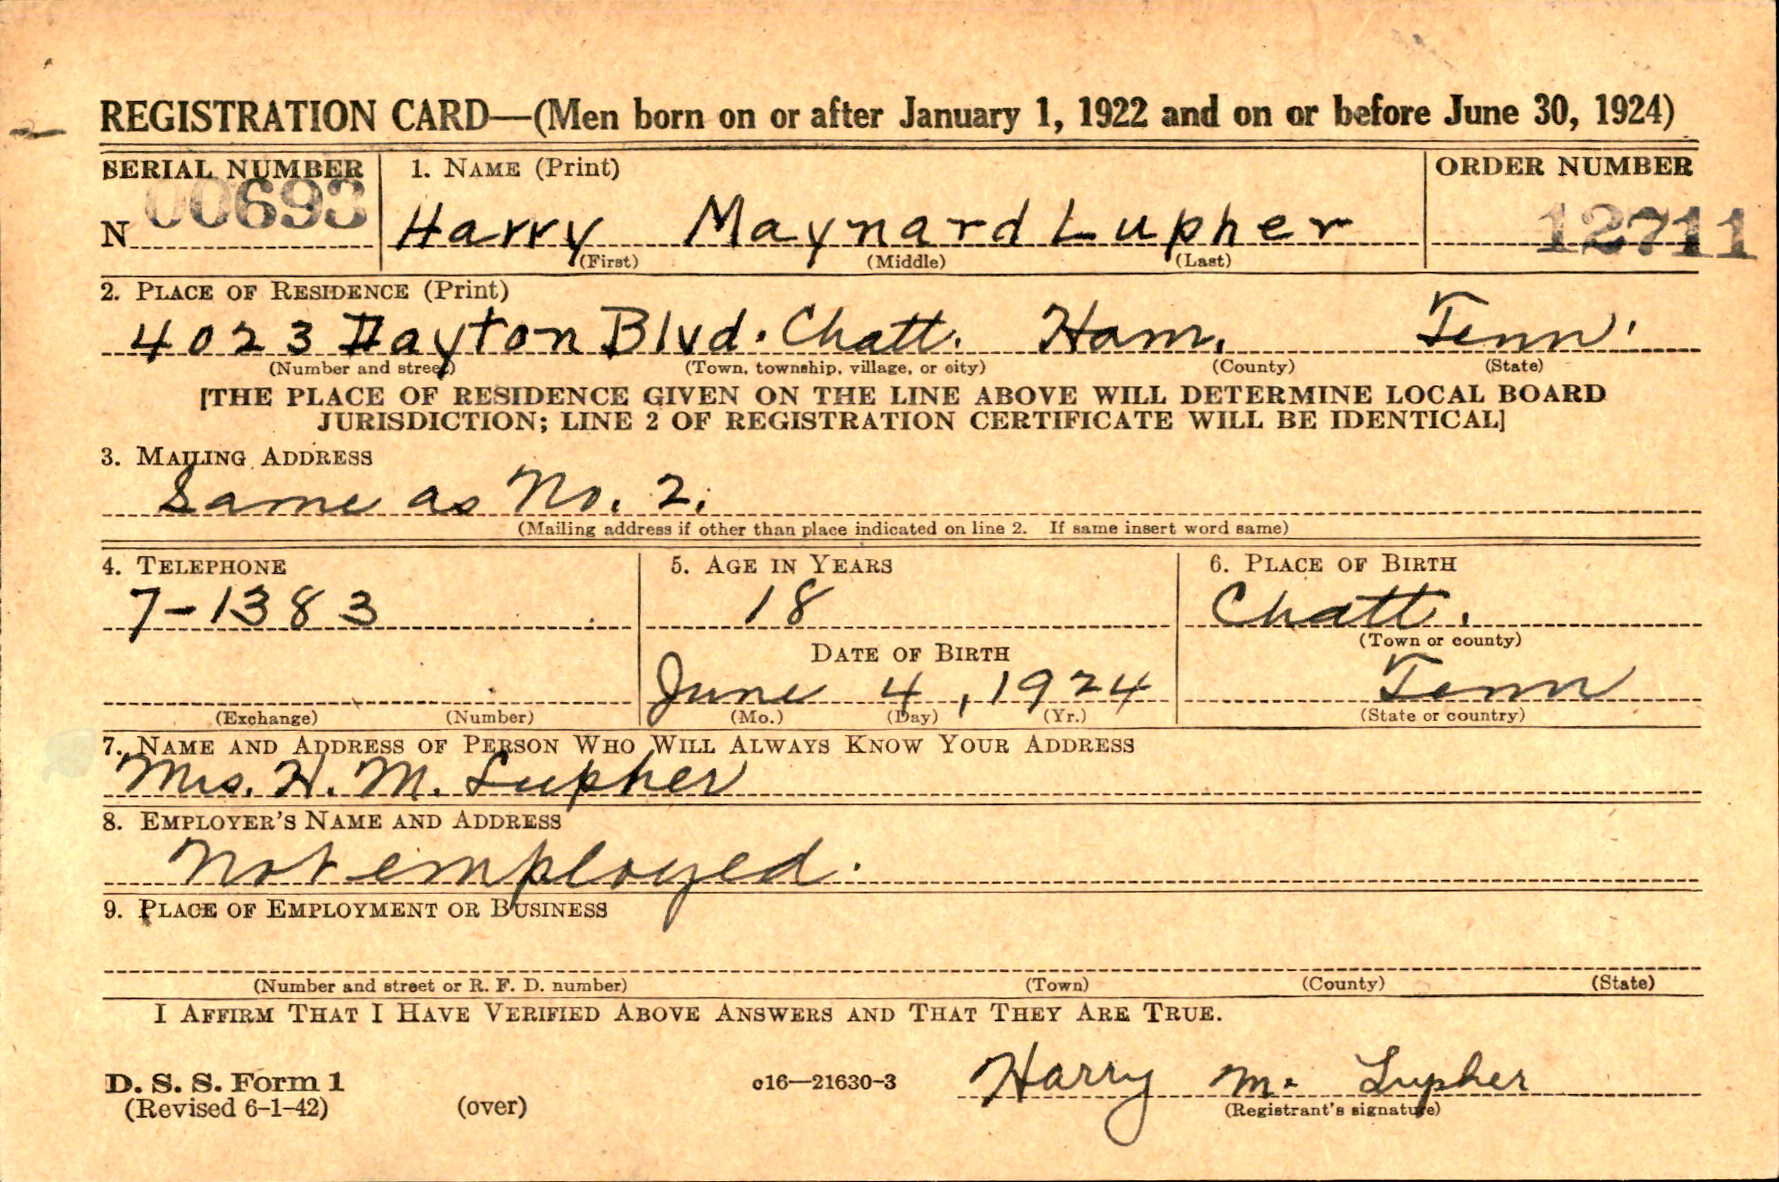 REGISTRATION CARD—(Men born on or after January 1, 1922 and on or before June 30, 1924)
SERIAL NUMBER 1. NAME (Print) ORDER NUMBER
N 00693 Harry Maynard Lupher 12711
(First) (Middle) (Last)
2. PLACE OF RESIDENCE (Print)
4023 Dayton Blvd. Chatt. Ham. Tenn.
(Number and street) (Town, township, village, or city) (County) (State)
[THE PLACE OF RESIDENCE GIVEN ON THE LINE ABOVE WILL DETERMINE LOCAL BOARD
JURISDICTION; LINE 2 OF REGISTRATION CERTIFICATE WILL BE IDENTICAL]
3. MAILING ADDRESS
Same as No. 2.
(Mailing address if other than place indicated on line 2. If same insert word same)
4. TELEPHONE 5. AGE IN YEARS 6. PLACE OF BIRTH
7-1383 18 Chatt.
(Town or county)
DATE OF BIRTH
June 4, 1924 Tenn
(Exchange) (Number) (Mo.) (Day) (Yr.) (State or country)
7. NAME AND ADDRESS OF PERSON WHO WILL ALWAYS KNOW YOUR ADDRESS
Mrs. H. M. Lupher
8. EMPLOYER'S NAME AND ADDRESS
Not employed.
9. PLACE OF EMPLOYMENT OR BUSINESS
(Number and street or R. F. D. number) (Town) (County) (State)
I AFFIRM THAT I HAVE VERIFIED ABOVE ANSWERS AND THAT THEY ARE TRUE.
D. S. S. Form 1 c16—21630-3 Harry M. Lupher
(Revised 6-1-42) (over) (Registrant's signature)